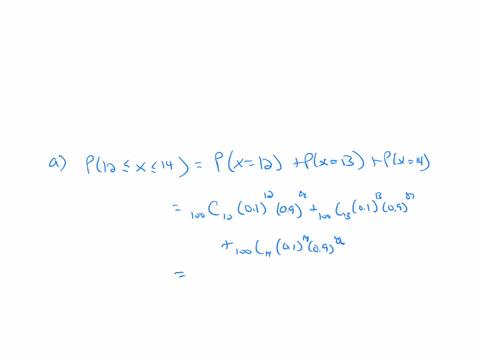 a) P(12 ≤ x ≤ 14) = P(x=12) + P(x=13) + P(x=14)
= ₁₀₀C₁₂ (0.1)¹² (0.9)⁸⁸ + ₁₀₀C₁₃ (0.1)¹³ (0.9)⁸⁷
+ ₁₀₀C₁₄ (0.1)¹⁴ (0.9)⁸⁶
=